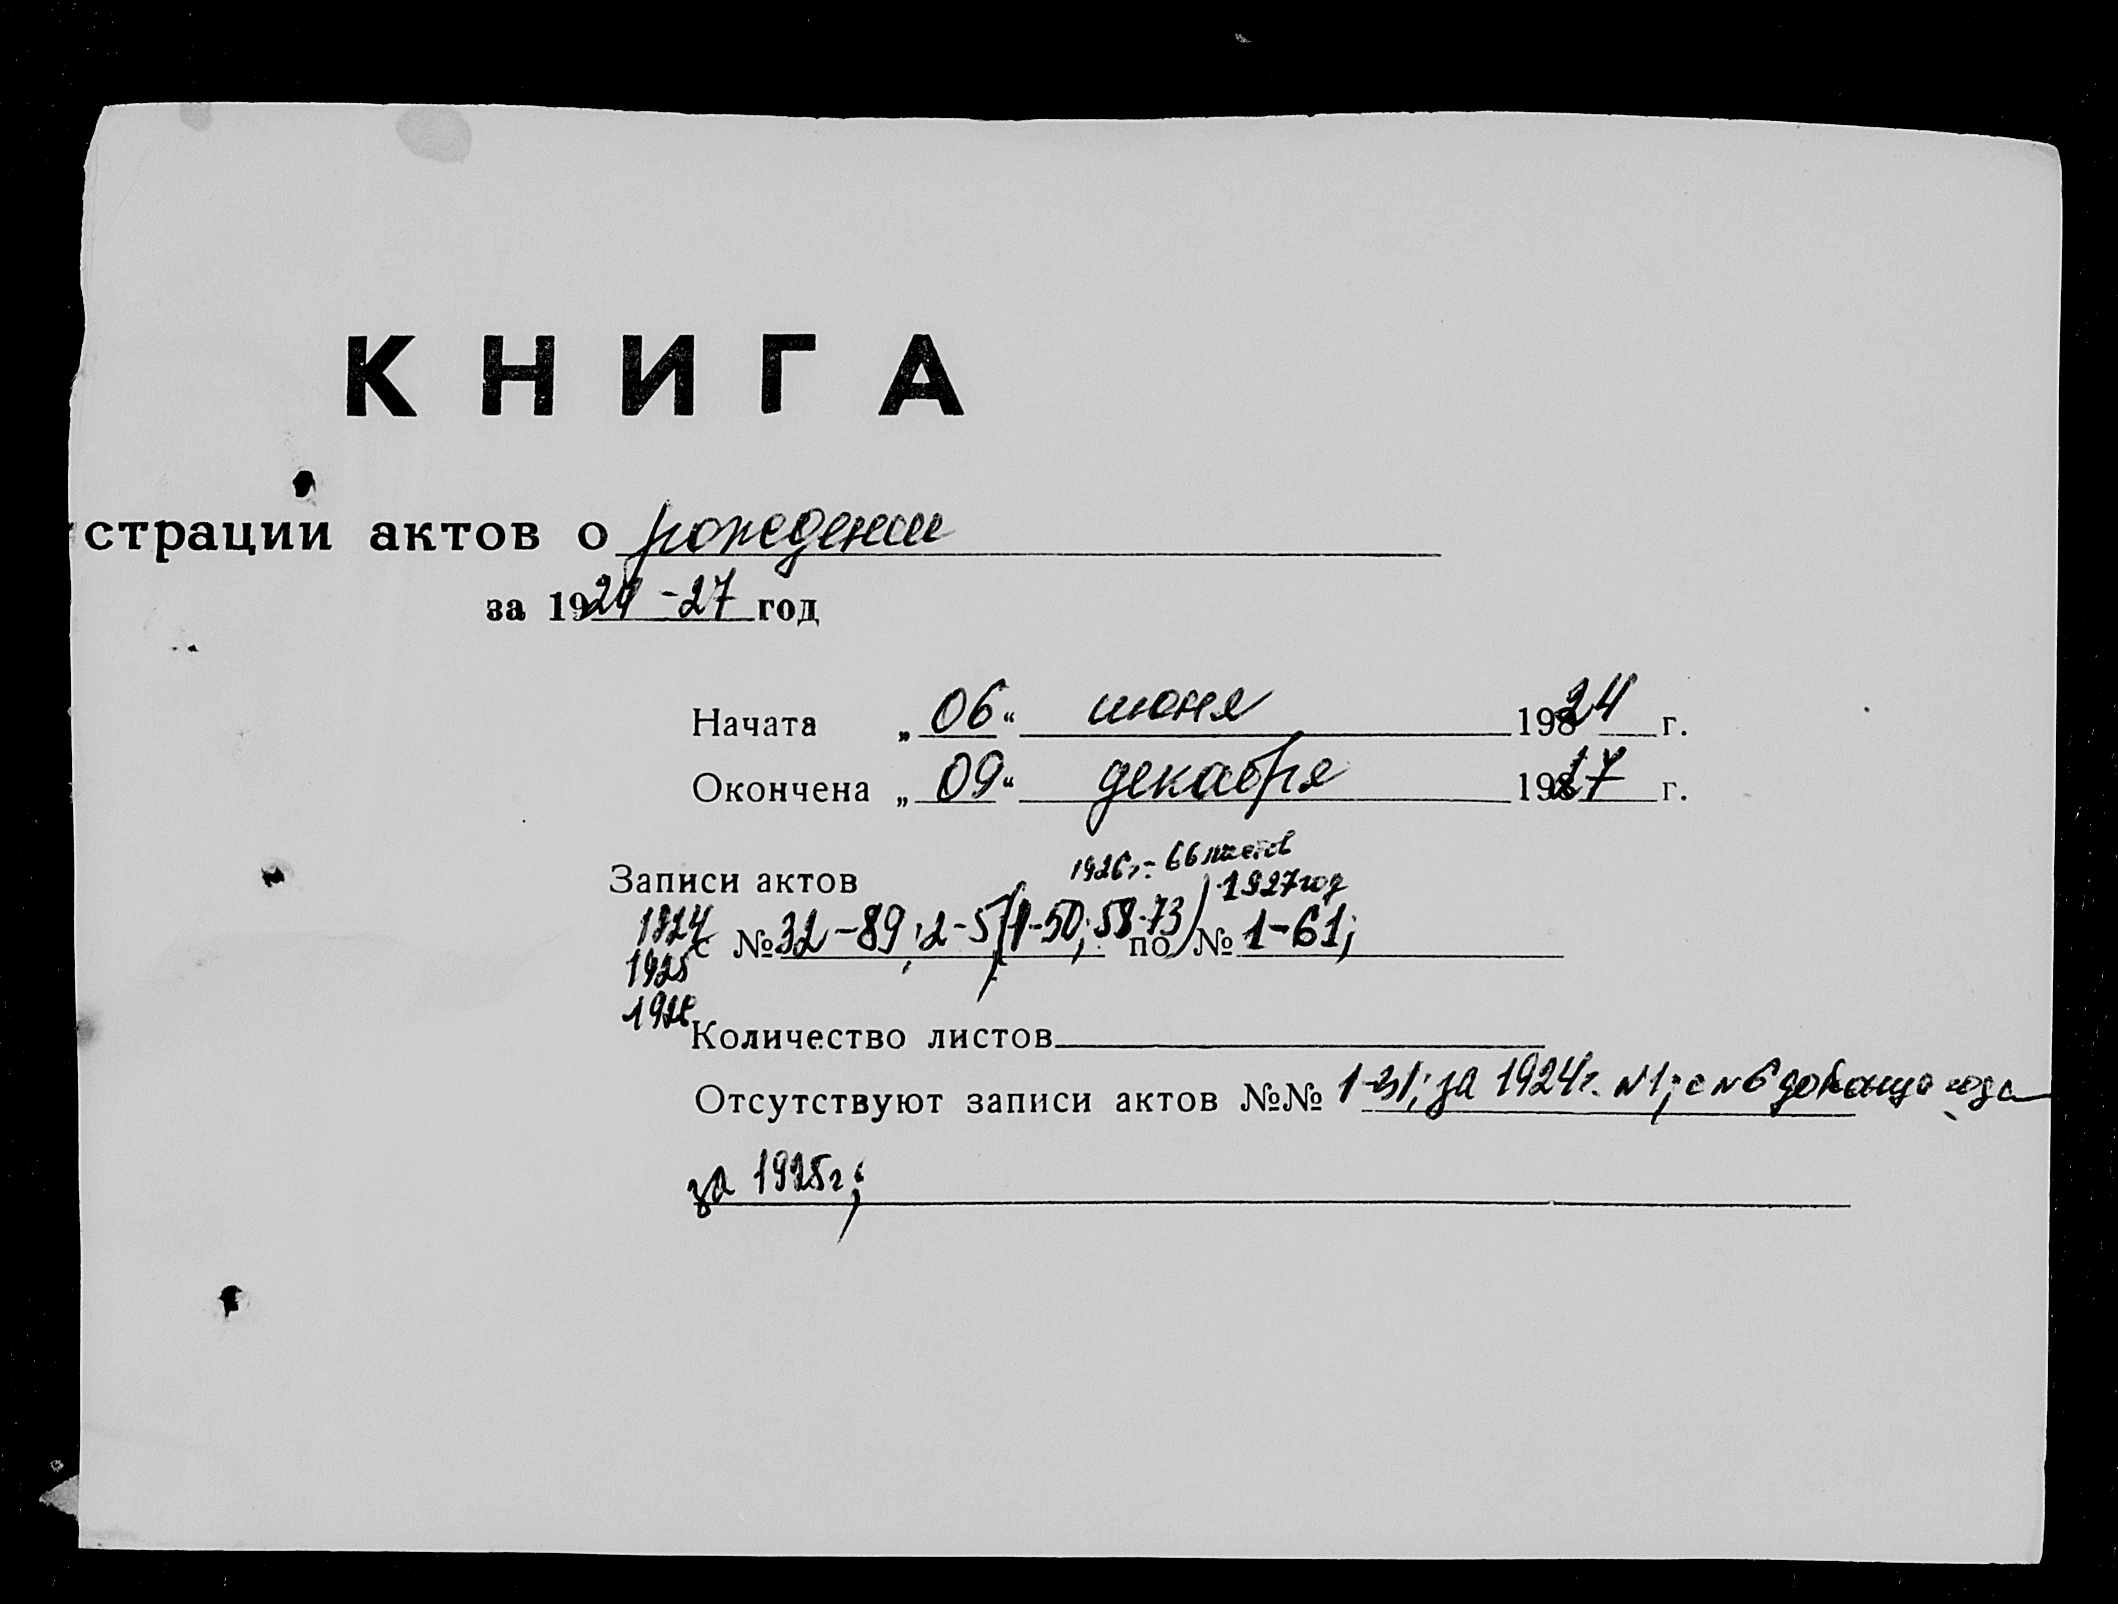 КНИГА
страции актов о рождении
за 1924-27 год
Начата „06“ июня 1924 г.
Окончена „09“ декабря 1927 г.
1926г.- 66 листов
Записи актов 1927 год
1924 с № 32-89; 2-5/1-50; 58-73/ по № 1-61;
1925
1926
Количество листов
Отсутствуют записи актов №№ 1-31; за 1924г. №1; с №6 до конца года
за 1925г;